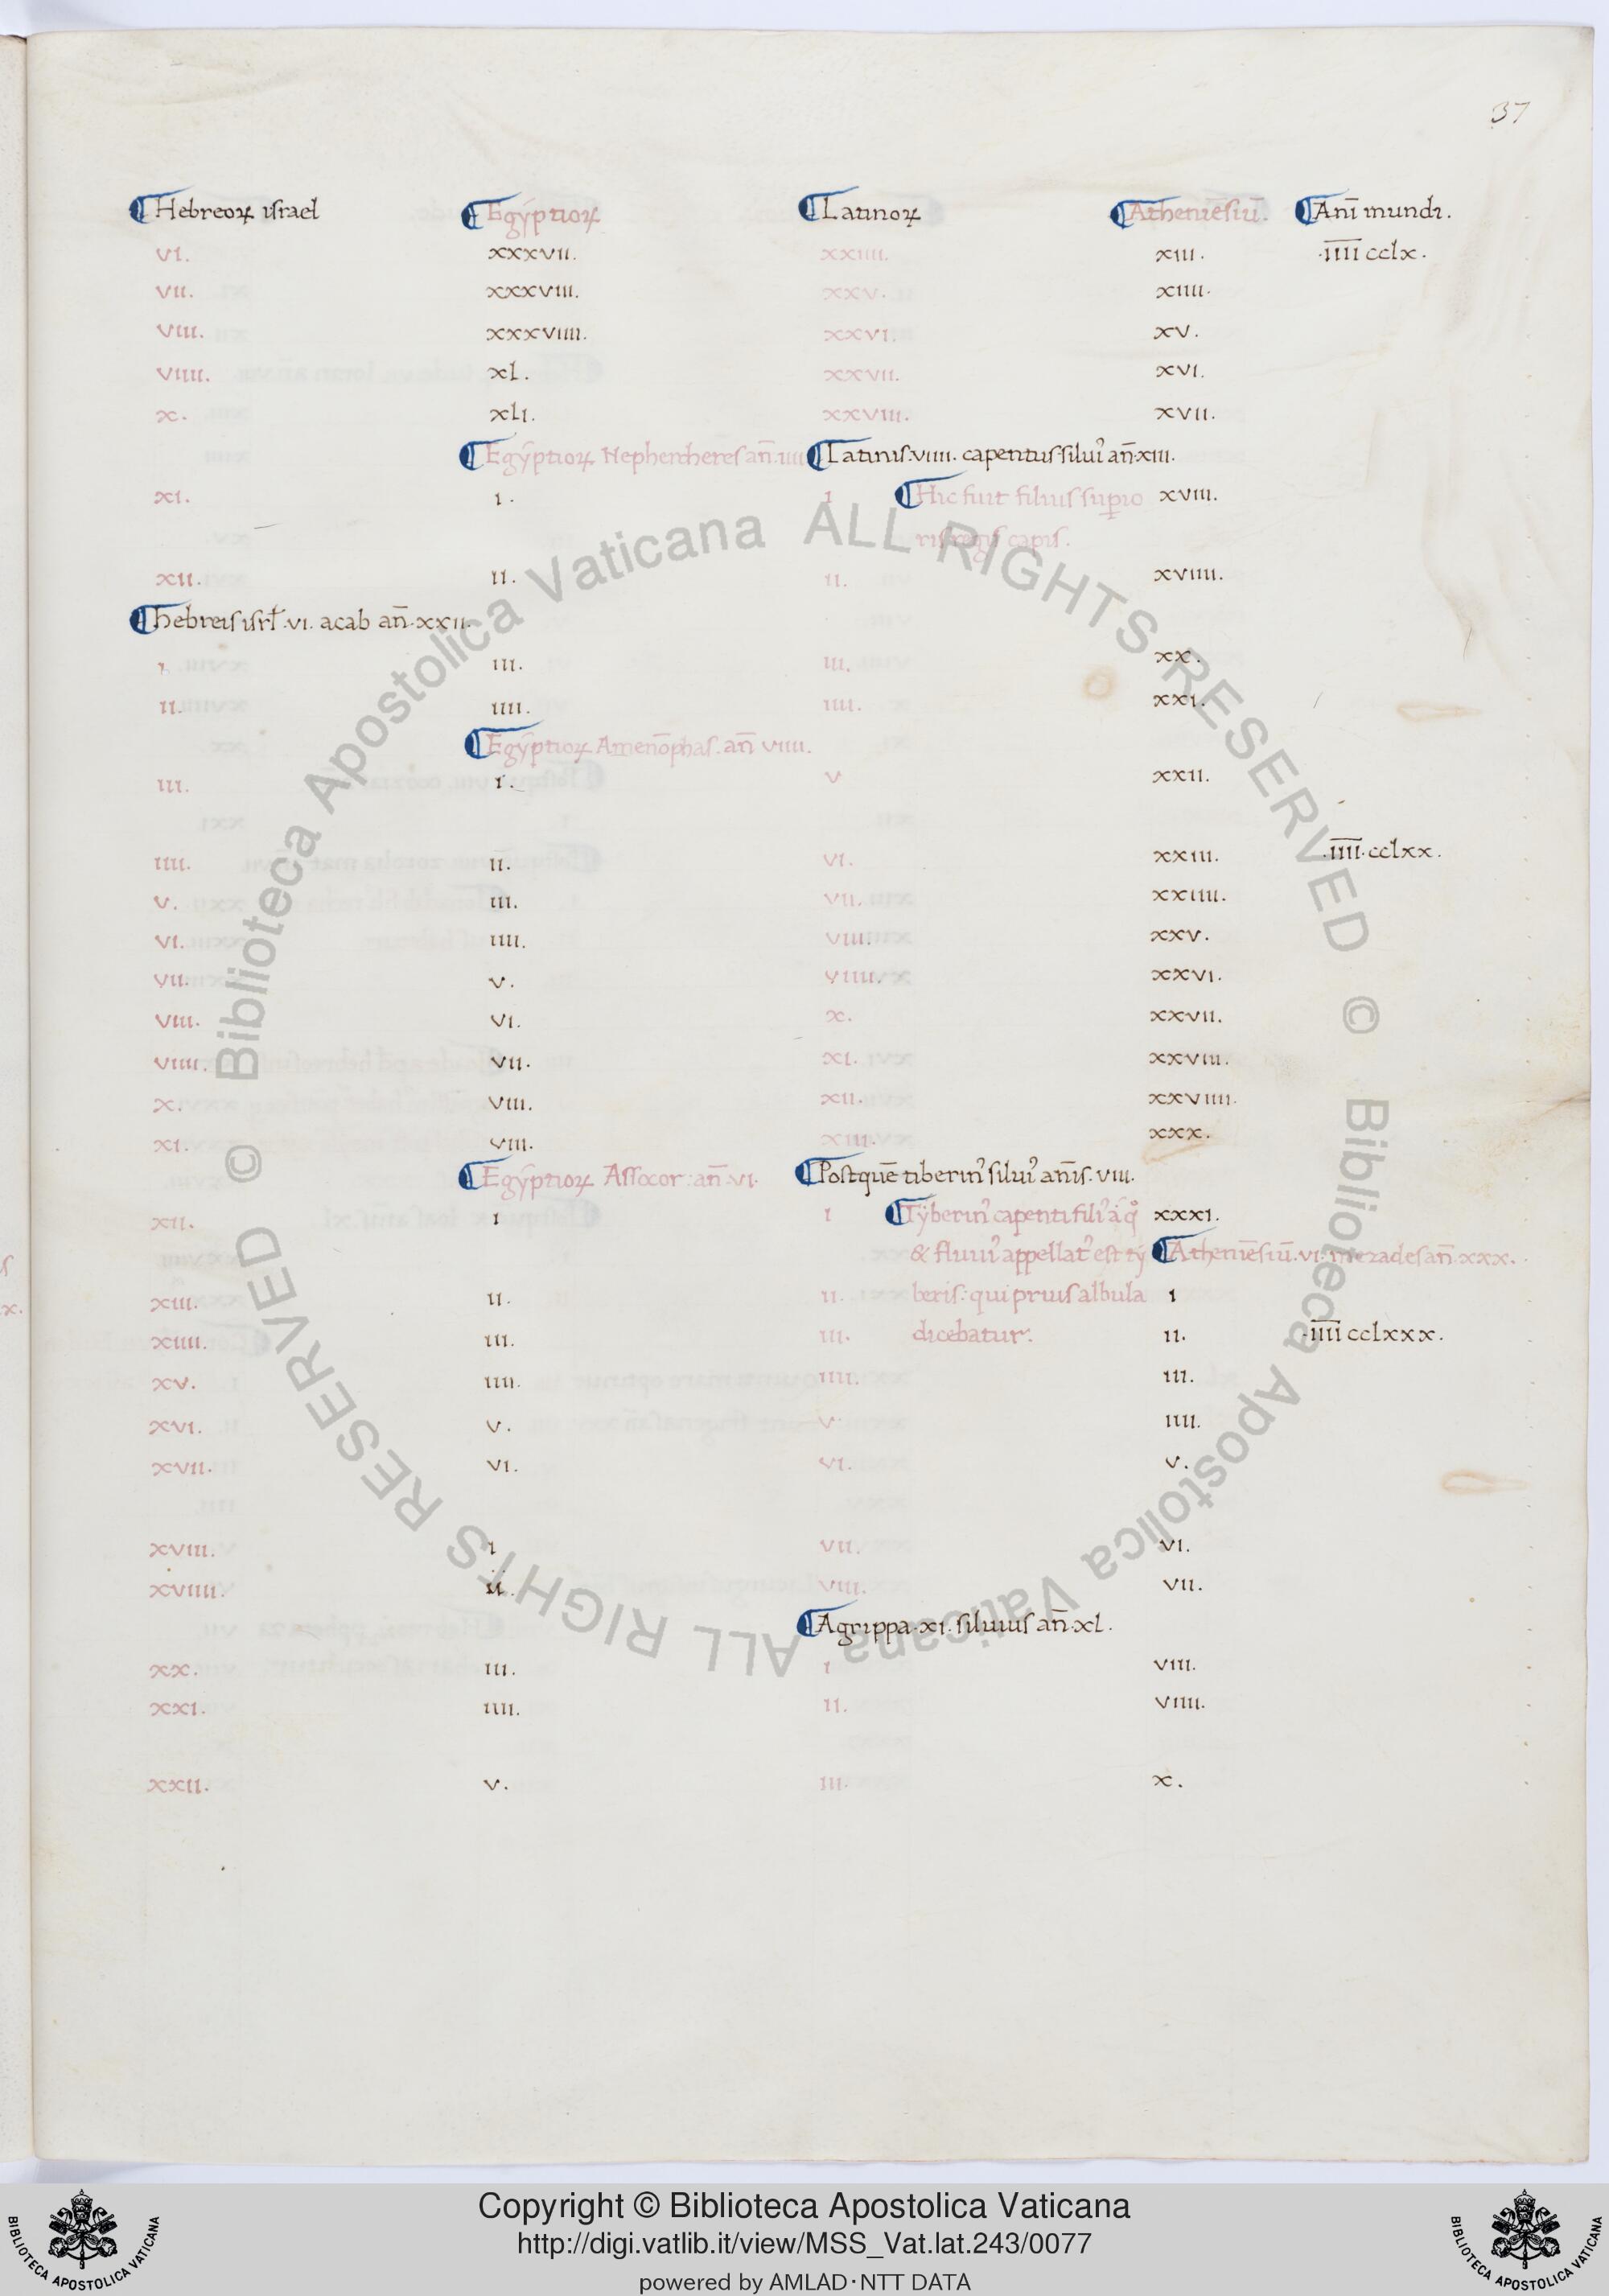 37
Hebreoꝝ israel Egyptioꝝ Latinoꝝ Atheniēsiū. Anī mundi.
VI. xxxvII. xxIIII. xIII. ·IIII cclx.
VII. xxxvIII. xxv. xIIII.
VIII. xxxvIIII. xxvI. xv.
VIIII. xl. xxvII. xvI.
x. xlI. xxvIII. xvII.
Egyptioꝝ Nephercheres an̄.IIII Latinis.vIIII. capentus siluiꝰ an̄.xIII.
xI. I. I Hic fuit filius supio xvIII.
ris regis capis.
xII. II. II. xvIIII.
hebreis isrł.vI. acab an̄.xxII.
I III. III. xx.
II. IIII. IIII. xxI.
Egyptioꝝ Amenōphas. an̄ vIIII.
III. I. v xxII.
IIII. II. vI. xxIII. ·IIII·cclxx.
v. III. vII. xxIIII.
vI. IIII. vIII. xxv.
vII. v. vIIII. xxvI.
vIII. vI. x. xxvII.
vIIII. vII. xI. xxvIII.
x. vIII. xII. xxvIIII.
xI. vIII. xIII. xxx.
Egyptioꝝ Assocor: an̄.vI. Postquē tiberinꝰ siluiꝰ anīs. vIII.
xII. I I Tyberinꝰ capenti filiꝰ a q° xxxI.
& fluuiꝰ appellatꝰ est ty Atheniēsiū.vI. mezades an̄.xxx.
xIII. II. II. beris: qui prius albula I
xIIII. III. III. dicebatur. II. ·IIII cclxxx.
xv. IIII. IIII. III.
xvI. v. v. IIII.
xvII. vI. vI. v.
xvIII. I vII. vI.
xvIIII. II. vIII. vII.
Agrippa.xI. siluius an̄.xl.
xx. III. I vIII.
xxI. IIII. II. vIIII.
xxII. v. III. x.
© Biblioteca Apostolica Vaticana ALL RIGHTS RESERVED
© Biblioteca Apostolica Vaticana ALL RIGHTS RESERVED
Copyright © Biblioteca Apostolica Vaticana
http://digi.vatlib.it/view/MSS_Vat.lat.243/0077
powered by AMLAD·NTT DATA
BIBLIOTECA APOSTOLICA VATICANA
BIBLIOTECA APOSTOLICA VATICANA